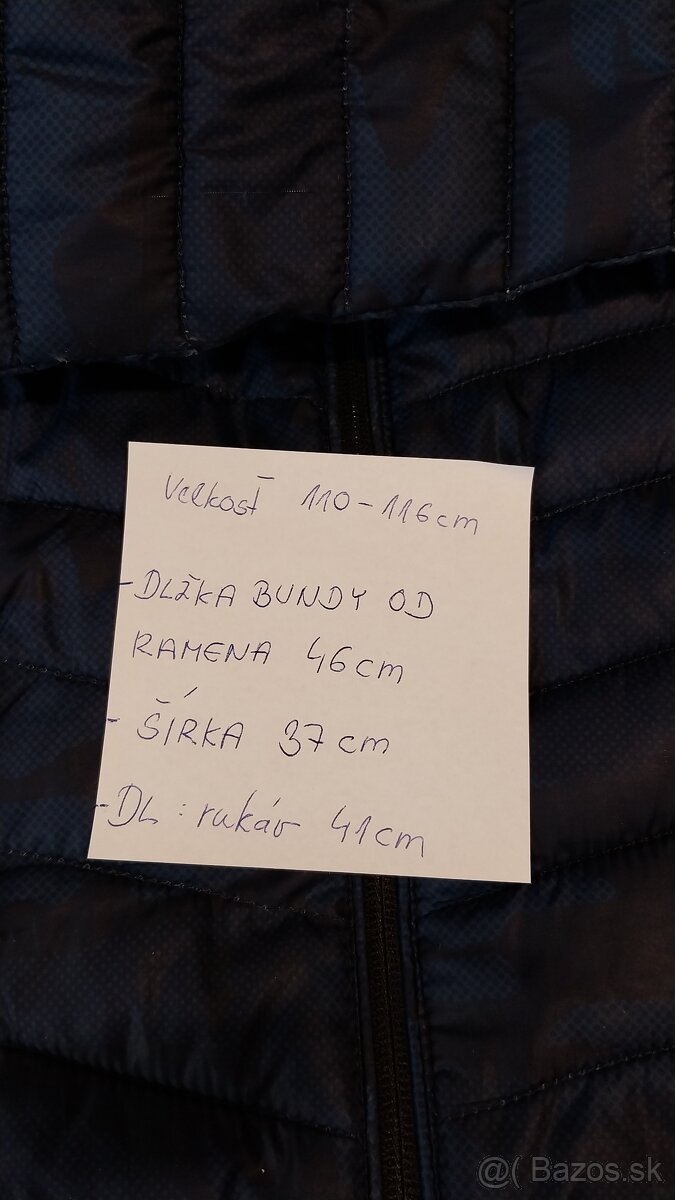 Velkosť 110-116cm
-DLŽKA BUNDY OD
RAMENA 46cm
- ŠÍRKA 37cm
-DL: rukáv 41cm
@( Bazos.sk